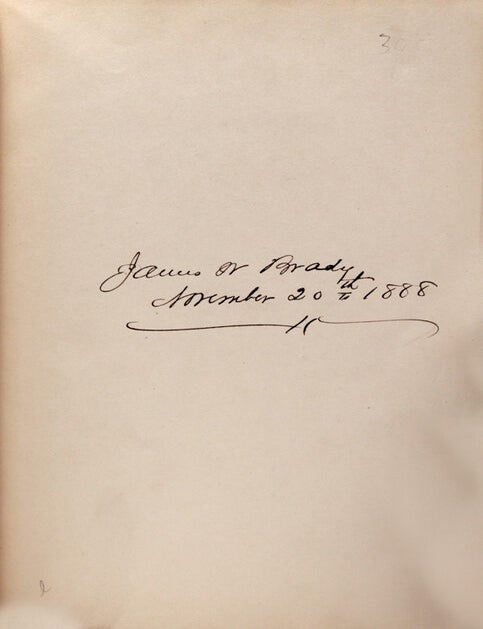 James W Brady
November 20th 1888